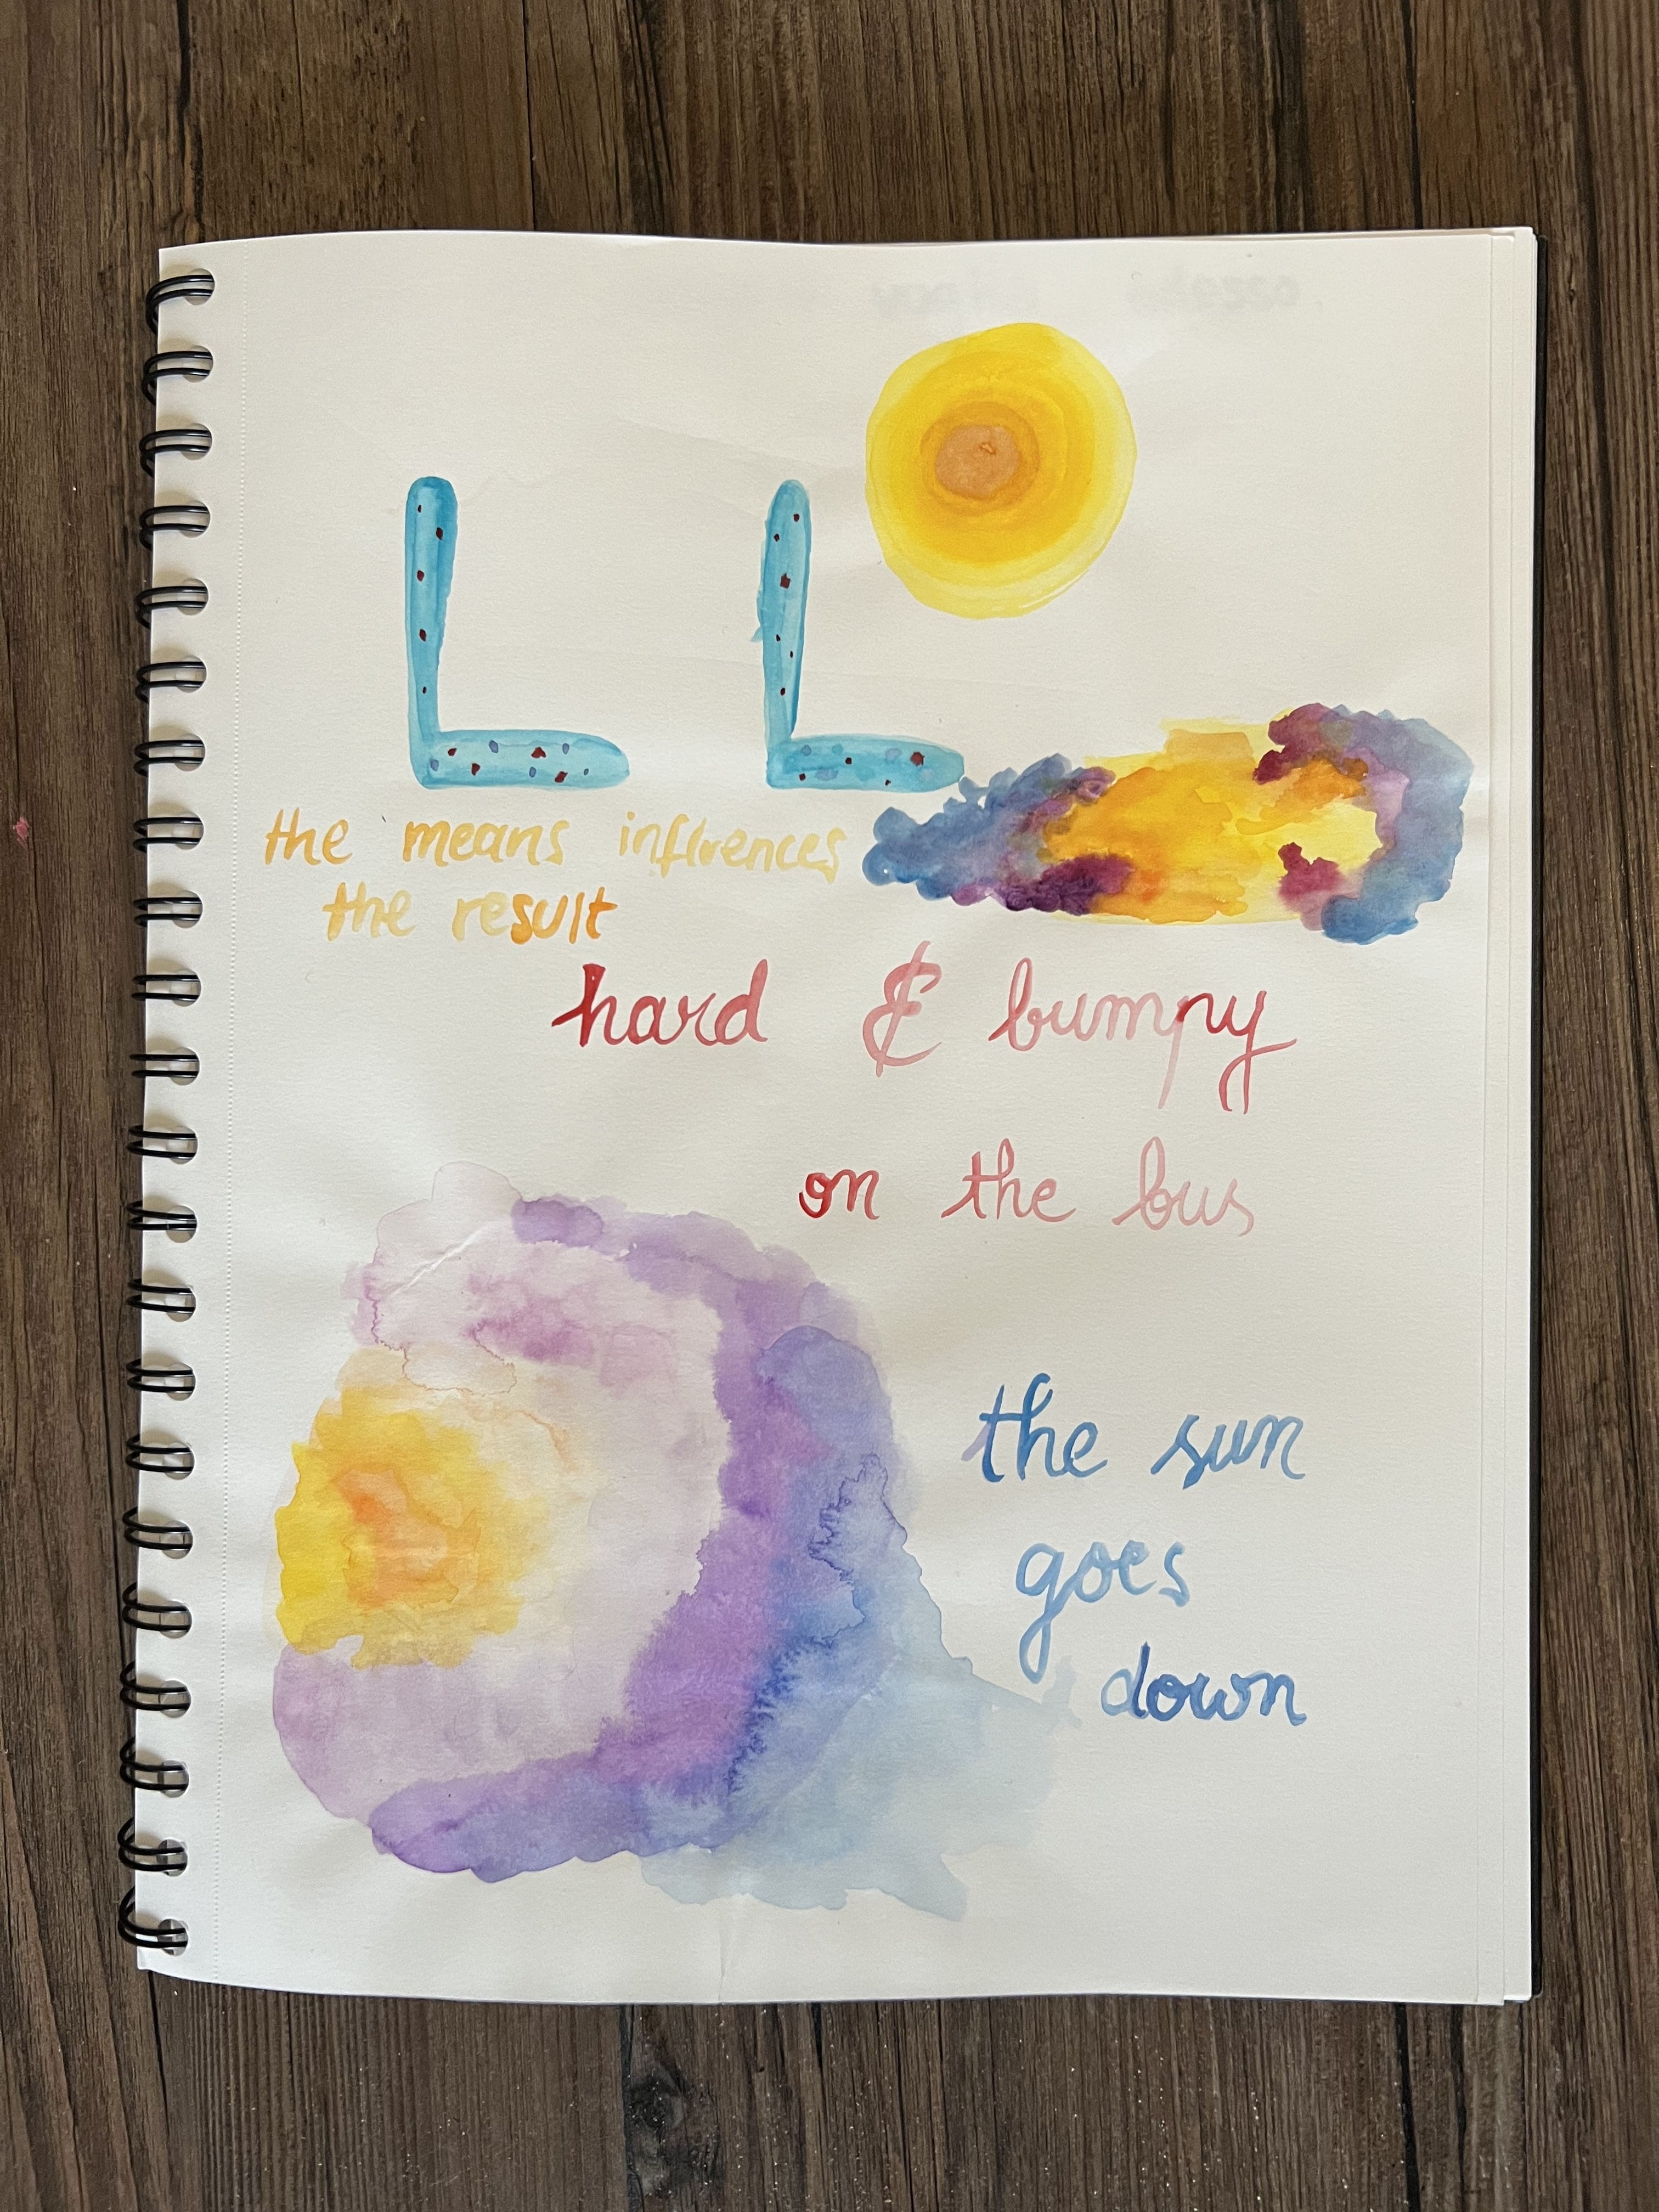 L L
the means influences
the result
hard & bumpy
on the bus
the sun
goes
down